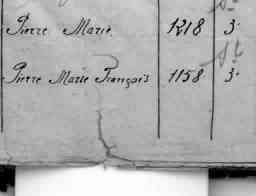 Pierre Marie 1218 3.
Pierre Marie François 1158 3.